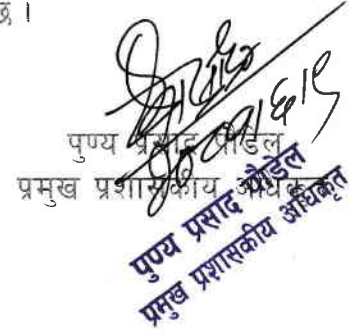 छ ।
पुण्य प्रसाद पौडेल
प्रमुख प्रशासकीय अधिकृत
पुण्य प्रसाद पौडेल
प्रमुख प्रशासकीय अधिकृत